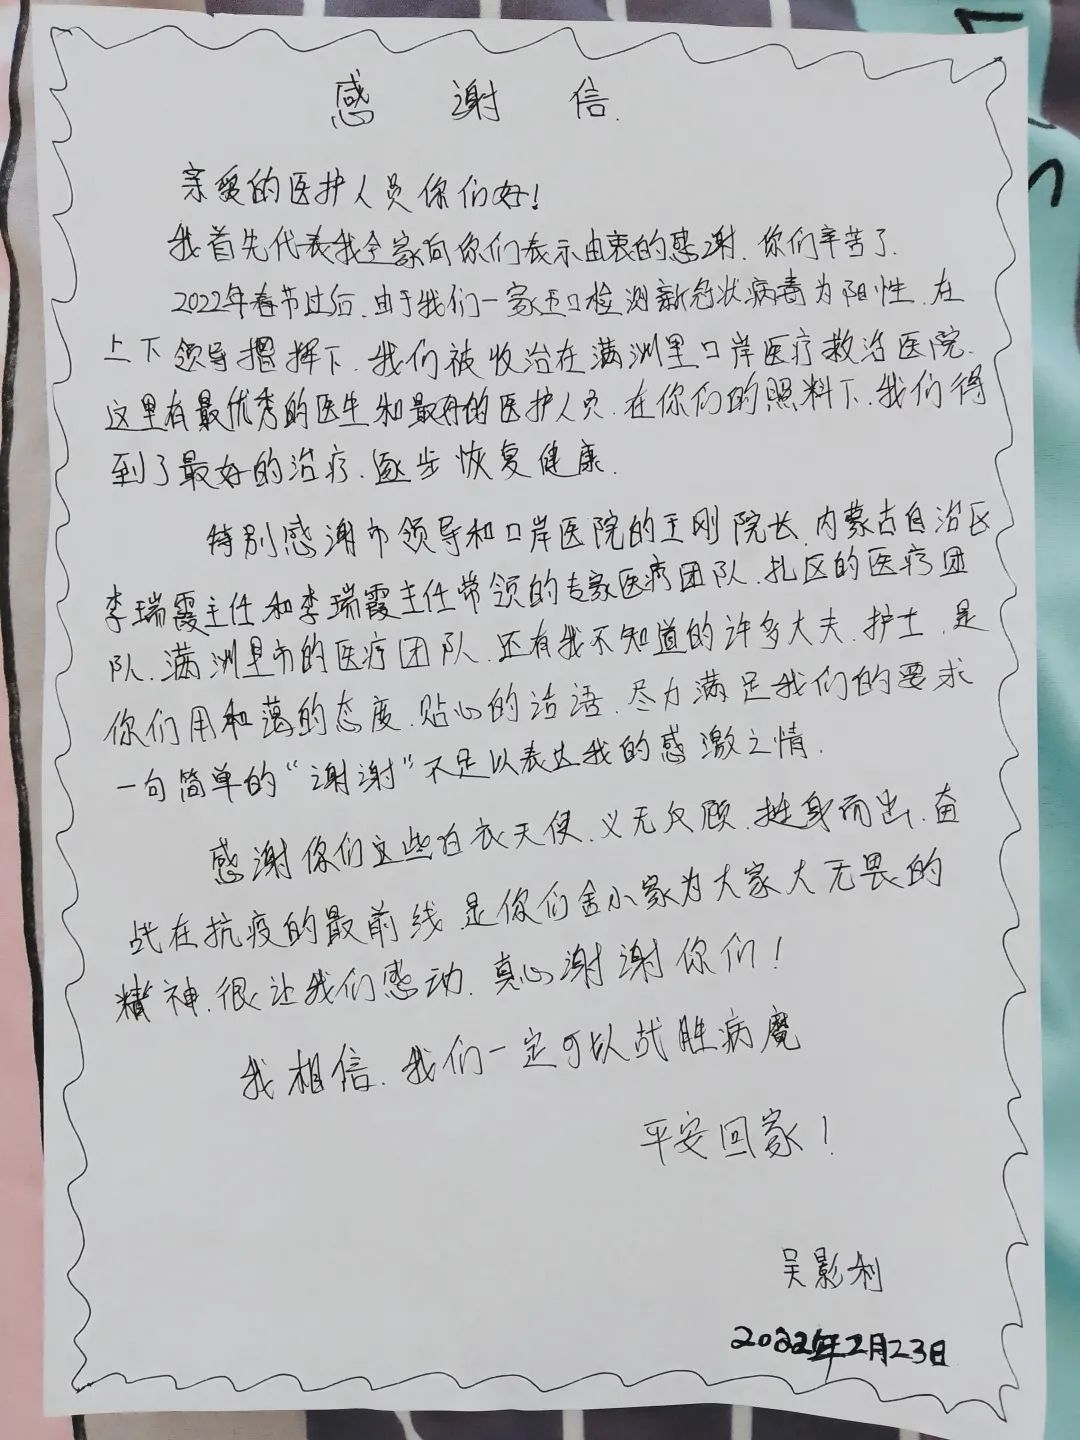 感谢信.
亲爱的医护人员你们好!
我首先代表我全家向你们表示由衷的感谢.你们辛苦了.
2022年春节过后.由于我们一家五口检测新冠状病毒为阳性.在
上下领导指挥下.我们被收治在满洲里口岸医疗救治医院.
这里有最优秀的医生和最好的医护人员.在你们的照料下.我们得
到了最好的治疗.逐步恢复健康.
特别感谢市领导和口岸医院的王刚院长.内蒙古自治区
李瑞霞主任和李瑞霞主任带领的专家医疗团队.扎区的医疗团
队.满洲里市的医疗团队.还有我不知道的许多大夫.护士.是
你们用和蔼的态度.贴心的话语.尽力满足我们的要求
一句简单的“谢谢”不足以表达我的感激之情.
感谢你们这些白衣天使.义无反顾.挺身而出.奋
战在抗疫的最前线.是你们舍小家为大家大无畏的
精神.很让我们感动.真心谢谢你们!
我相信.我们一定可以战胜病魔
平安回家!
吴影利
2022年2月23日